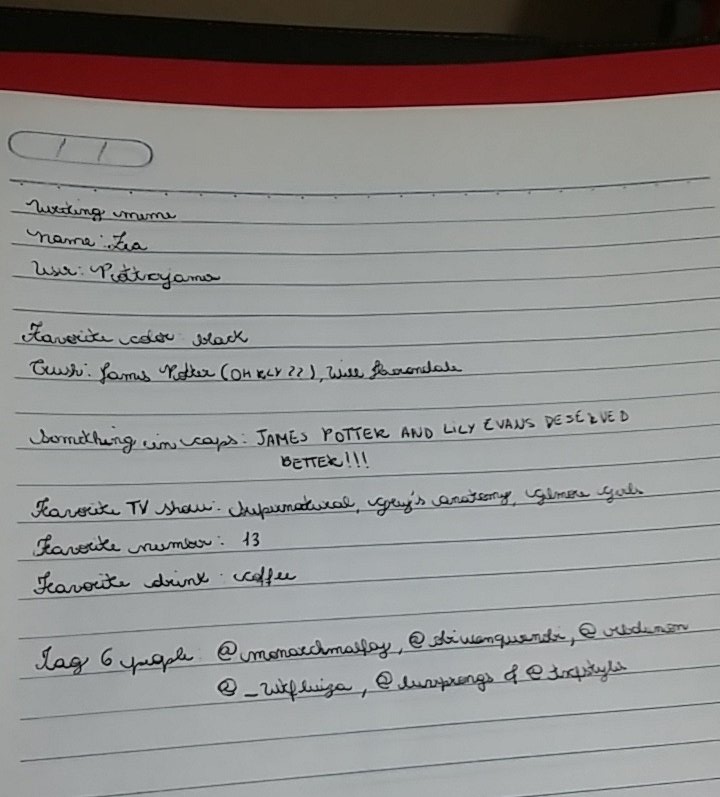 Writing meme
Name: Lia
User:
Favorite color: black
Crush: James Potter (OH RLY ??), Will Herondale
Something in caps: JAMES POTTER AND LILY EVANS DESERVED
BETTER!!!
Favorite TV show: Supernatural, Grey's anatomy, Gilmore Girls
Favorite number: 13
Favorite drink: coffee
Tag 6 people: @monarchmalfoy,